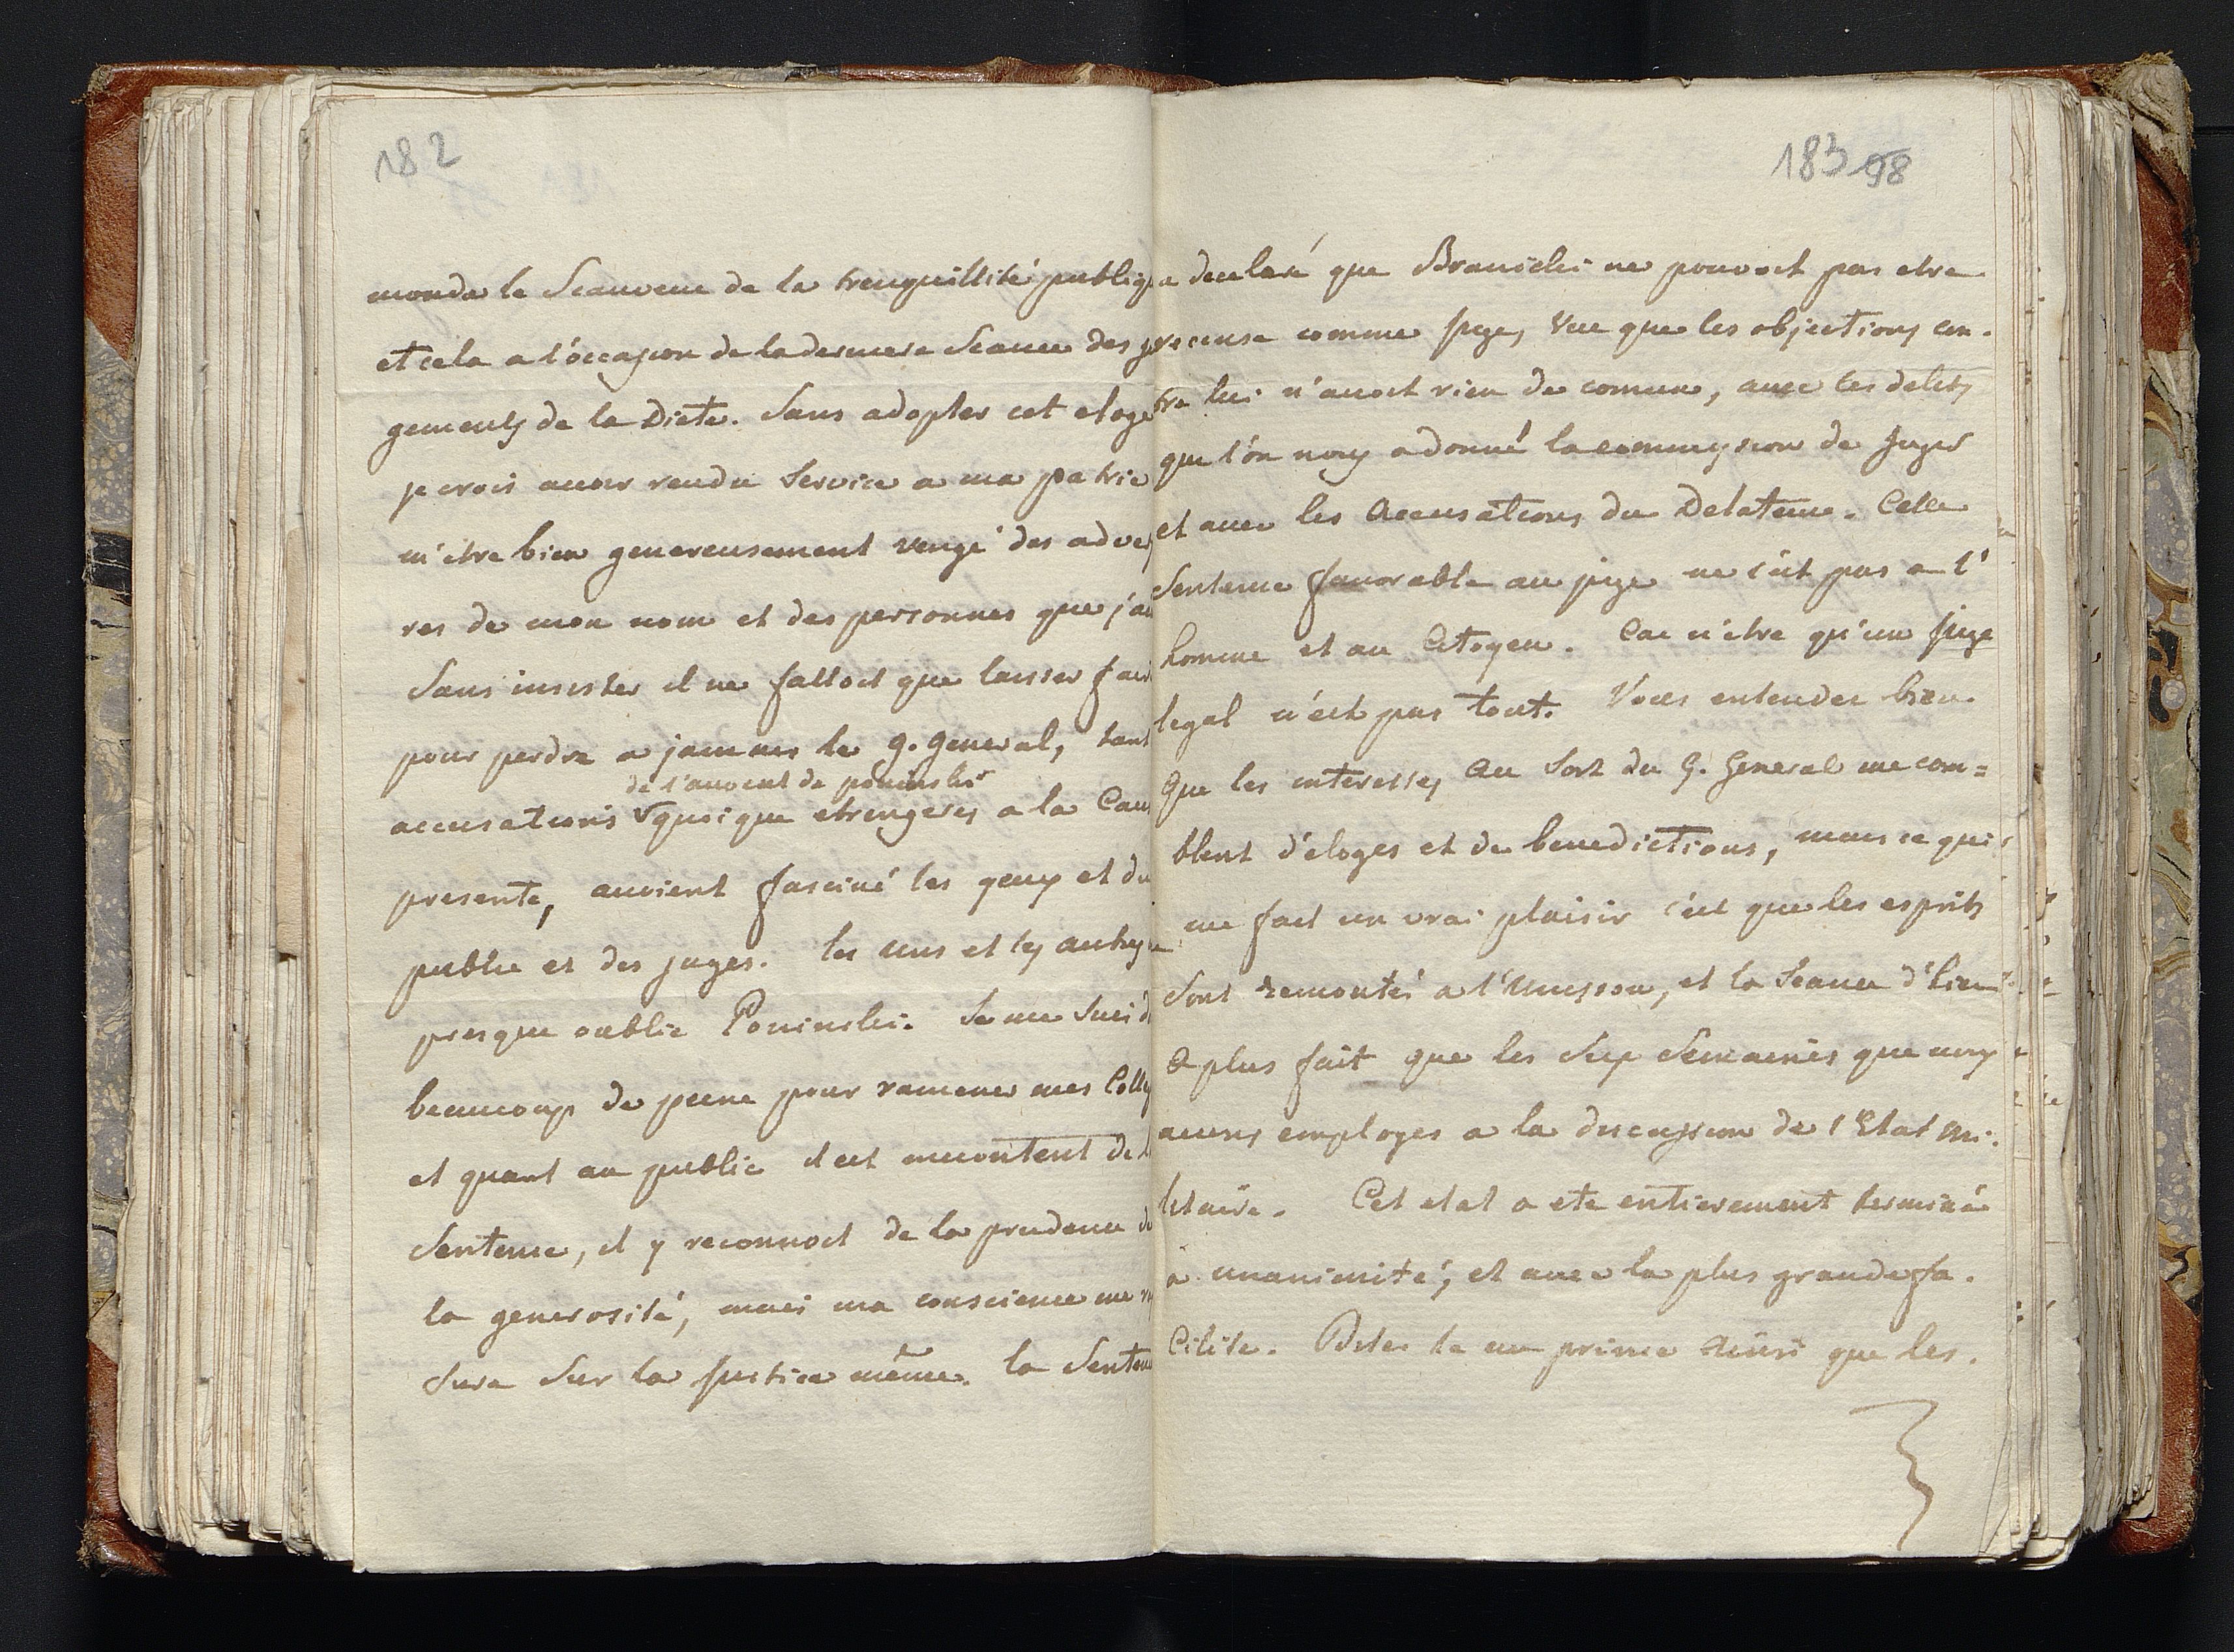 182
monde le Sauveur de la trenquillité publiq
et cela a l'occasion de la derniere Seance des ju
gements de la Diete. Sans adopter cet eloge
je crois avoir rendu Service a ma patrie
m'etre bien genereusement vengé des adver
res de mon nom et des personnes que j'ai
Sans insister il ne falloit que laisser fair
pour perdre a jammes le g. General, tant
de l'avocat de poninski
accusations quoique etrengeres a la Cau
presente, avoient fasciné les yeux et du
public et des juges. les uns et les autres
presque oublié Poninski. Je me suis d
beaucoup de peine pour ramener mes Colleg
et quant au public il est mecontent de l
Sentence, il y reconnoit de la prudence de
la generosité, mais ma conscience me r
sure sur la justice même. la Senten
183 98
a declaré que Branicki ne pouvoit pas etre
recuse comme juge, Vue que les objections con-
tre lui n'avoit rien de comun, avec les delits
que l'on nous a donné la commission de juger
et avec les Accusations du Delateur. Cette
Sentence favorable au juge ne l'est pas a l'
homme et au Citoyen. Car n'etre qu'un juge
legal n'est pas tout. Vous entendez bien
Que les interesses au Sort du G. General me com=
blent d'éloges et de benedictions, mais ce qui
me fait un vrai plaisir c'est que les esprits
Sont remontés a l'Unisson, et la Seance d'hier
a plus fait que les Six Semaines que nous
avions employes a la discussion de l'Etat Mi-
litaire. Cet etat a ete entierement terminé
a unanimité, et avec la plus grande fa-
cilité. Dites le au prince ainsi que les.